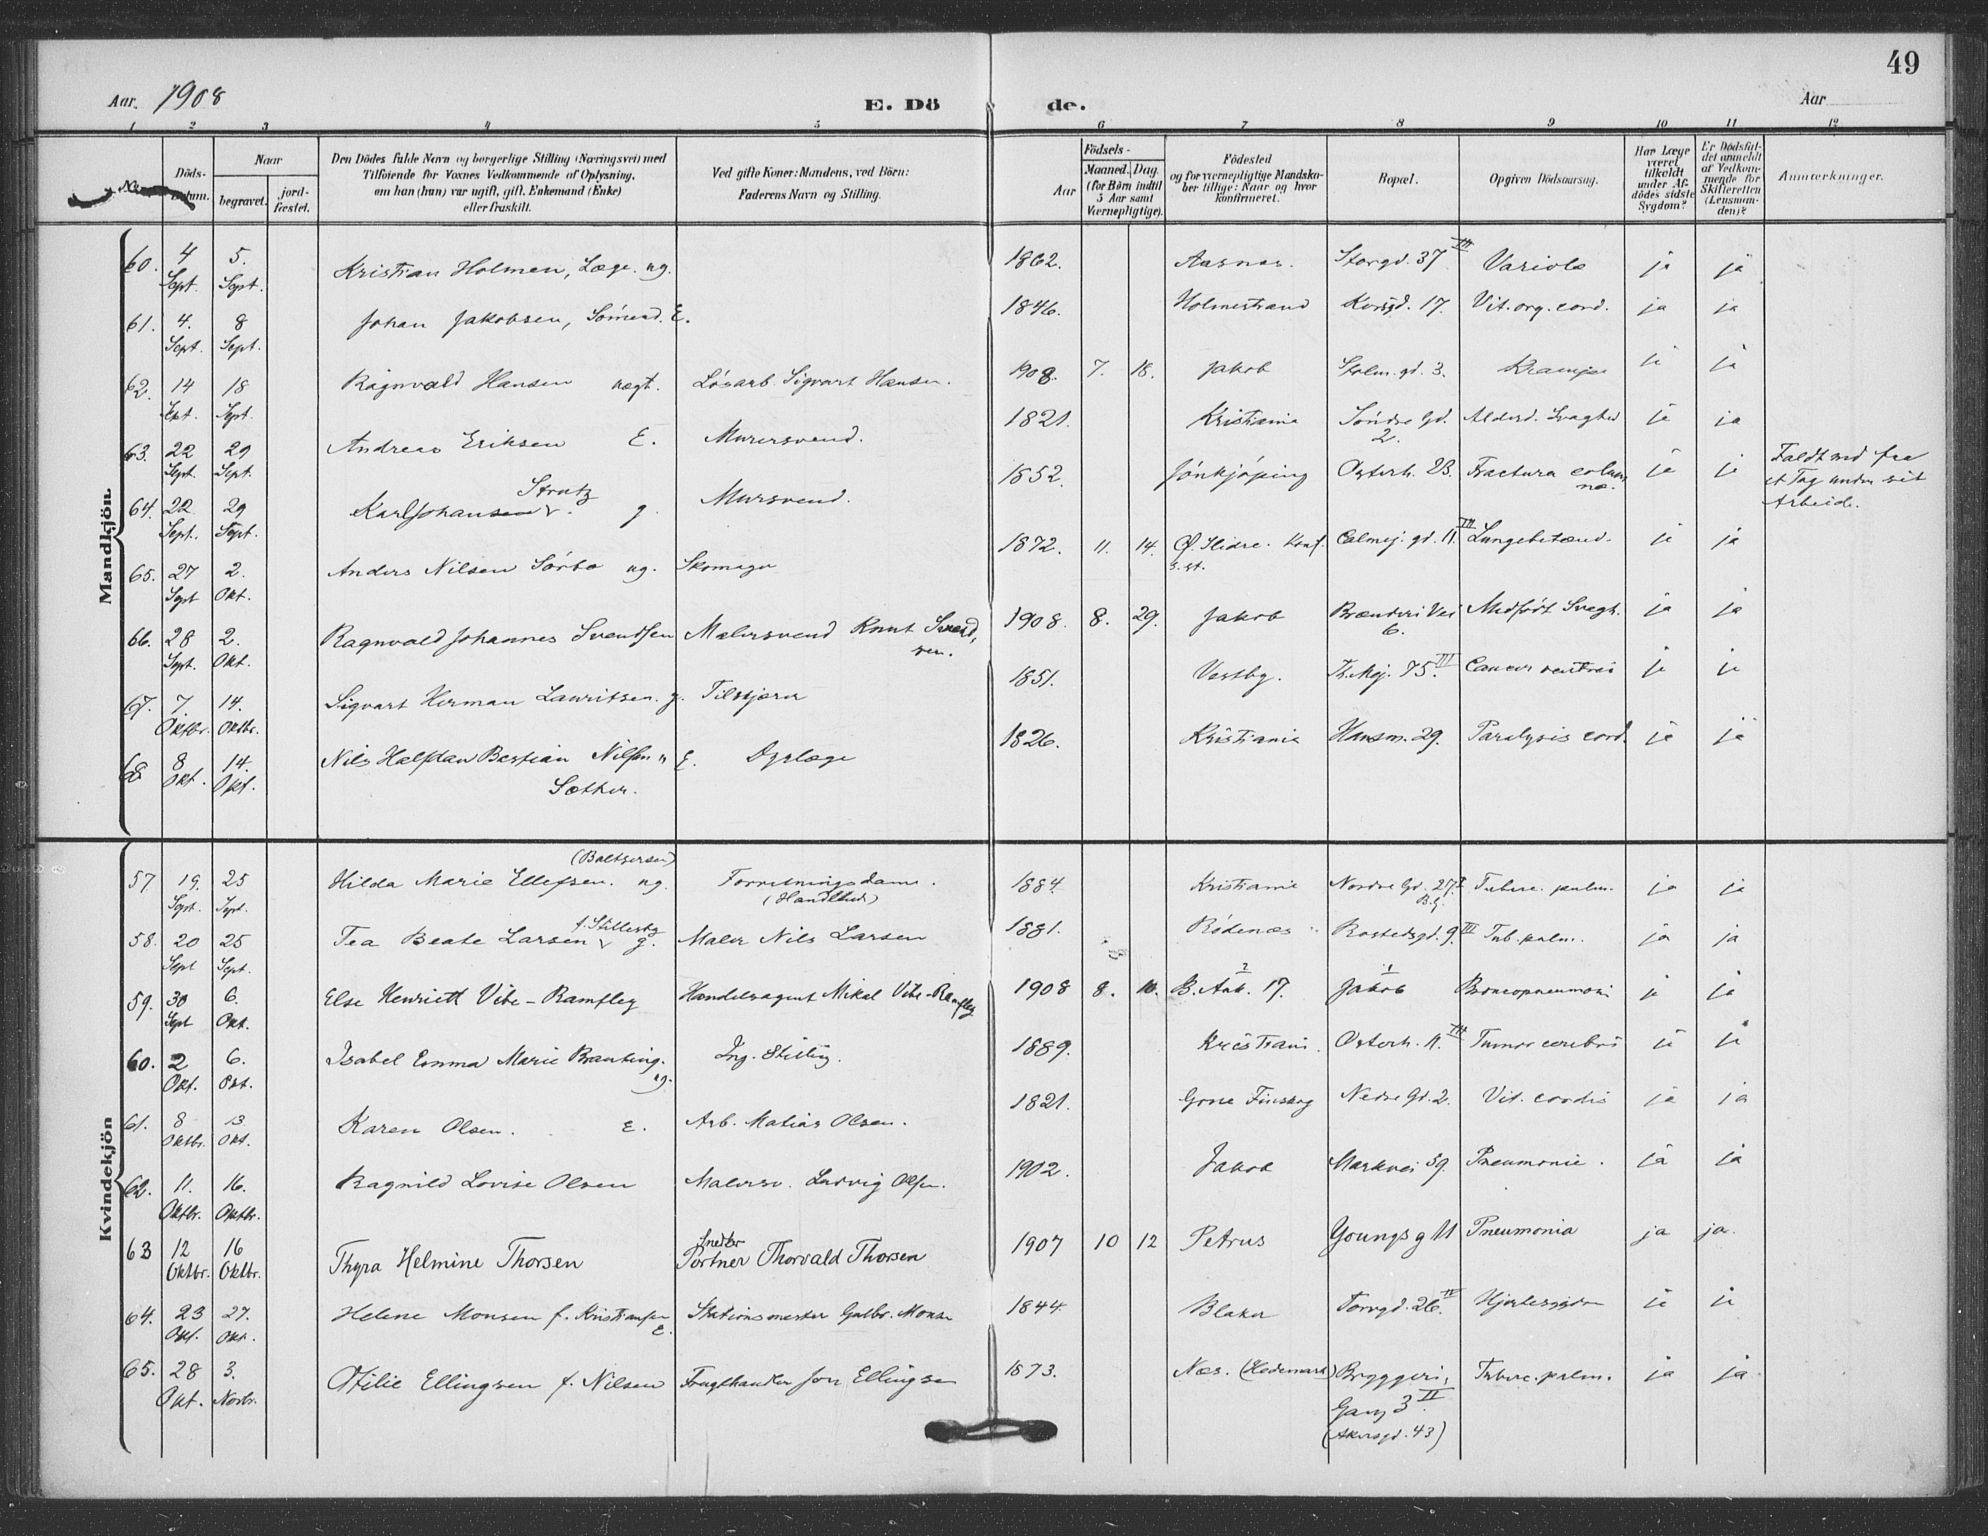 49
Aar. 1908
E. Dö
de.
Aar
1 2 3 4 5 6 7 8 9 10 11 12
Döds-
Naar
begravet.
jord-
fæstet.
Den Dödes fulde Navn og borgerlige Stilling (Næringsvei) med
Tilföiende for Voxnes Vedkommende af Oplysning,
om han (hun) var ugift, gift, Enkemand (Enke)
eller fraskilt.
Ved gifte Koner: Mandens, ved Börn:
Faderens Navn og Stilling.
Aar
Födsels-
Maaned. Dag.
(for Börn indtil
5 Aar samt
Værnepligtige).
Födested
og for værnepligtige Mandska-
ber tillige: Naar og hvor
konfirmeret.
Bopæl.
Opgiven Dödsaarsag.
Har Læge
været
tilkaldt
under Af-
dödes sidste
Sygdom?
Er Dödsfal-
det anmeldt
af Vedkom-
mende for
Skifteretten
(Lensman-
den)?
Anmærkninger.
Mandkjön.
60. 4 Sept. 5. Sept. Kristian Holmen, Læge. ug. 1862. Aasnes. Storgd. 37 III Variola ja ja
61. 4. Sept. 8 Sept. Johan Jakobsen, Sömand. E. 1846. Holmestrand Korsgd. 17. Vit. org. cord. ja ja
62. 14 Sept. 18 Sept. Ragnvald Hansen ægt. Lösarb. Sigvart Hansen. 1908. 7. 18. Jakob Holm. gd. 3. Krampe ja ja
63. 22 Sept. 29 Sept. Andreas Eriksen E. Murersvend. 1821. Kristiania Söndre Gd. 2. Alderd. Svaghed ja ja
64. 22 Sept. 29 Sept. Karl Johansen Strutz g. Mursvend. 1852. Jönkjöping Osterh. 23. Fractura columnæ. ja ja Faldt ned fra
et Tag under sit
Arbeide.
65. 27 Sept 2. Okt. Anders Nilsen Sörbo ug. Skomager 1872. 11. 14. Ø. Slidre. Konf. s. st. Calmej. gd. 11. III Lungebetænd. ja ja
66. 28 Sept. 2. Okt. Ragnvald Johannes Svendsen Malersvend Knut Svendsen. 1908. 8. 29. Jakob Brænderi Vei 6. Medfödt Svagh. ja ja
67. 7. Oktbr. 14. Oktbr. Sigvart Herman Lauritsen. g. Tilskjærer 1851. Vestby. Th. Mej. 75. III Cancer ventric ja ja
68 8 Okt. 14. Okt. Nils Halfdan Bastian Nilsen E. Dyrlæge 1826. Kristiania Hausm. 29. Paralysis cord. ja ja
Sæther.
Kvindekjön
57 19. Sept. 25 Sept. Hilda Marie Ellefsen. (Baltzersen) ug. Forretningsdame. 1884. Kristiania Nordre Gd. 27 I B.G. Tuberc. pulm. ja ja
58. 20 Sept 25 Sept. Tea Beate Larsen f. Stillesby g. Maler Nils Larsen 1881. Rödenæs Rostedsgd. 9. III Tub. pulm. ja ja
59. 30 Sept 6. Okt. Else Henriett Vibe-Ramfley Handelsagent Mikal Vibe-Ramfley 1908 8. 10. B. Ank. 17. 2 Jakob 1 Broncopneumoni ja ja
60. 2 Okt. 6. Okt. Isabel Emma Marie Branting. ug. Ing. Stilling. 1889. Kristiani. Osterh. 11. III Tumor cerebri ja ja
61. 8 Oktbr. 13. Okt. Karen Olsen. E. Arb. Matias Olsen. 1821. Grue Finskog Nedre Gd. 2. Vit. cordis ja ja
62. 11. Oktbr. 16. Oktbr. Ragnild Lovise Olsen Malersv. Ludvig Olsen. 1902. Jakob Markvei 59. Pneumonie. ja ja
63 12 Oktbr. 16 Oktbr. Thyra Helmine Thorsen Snedker Portner Thorvald Thorsen 1907 10 12 Petrus Youngs g 11 Pneumonia ja ja.
64. 23 Okt. 27. Okt. Helene Monsen f. Kristiansen E. Stationsmester Gulbr. Monsen 1844. Blaker Torvgd. 26. IV Hjertesygdom ja ja
65. 28 Okt. 3. Novbr. Otilie Ellingsen f. Nilsen Frugthandler Jon Ellingsen 1873. Næs. (Hedemark) Bryggeri, Gang 3 II Tuberc. pulm. ja ja
(Akersgd. 43)